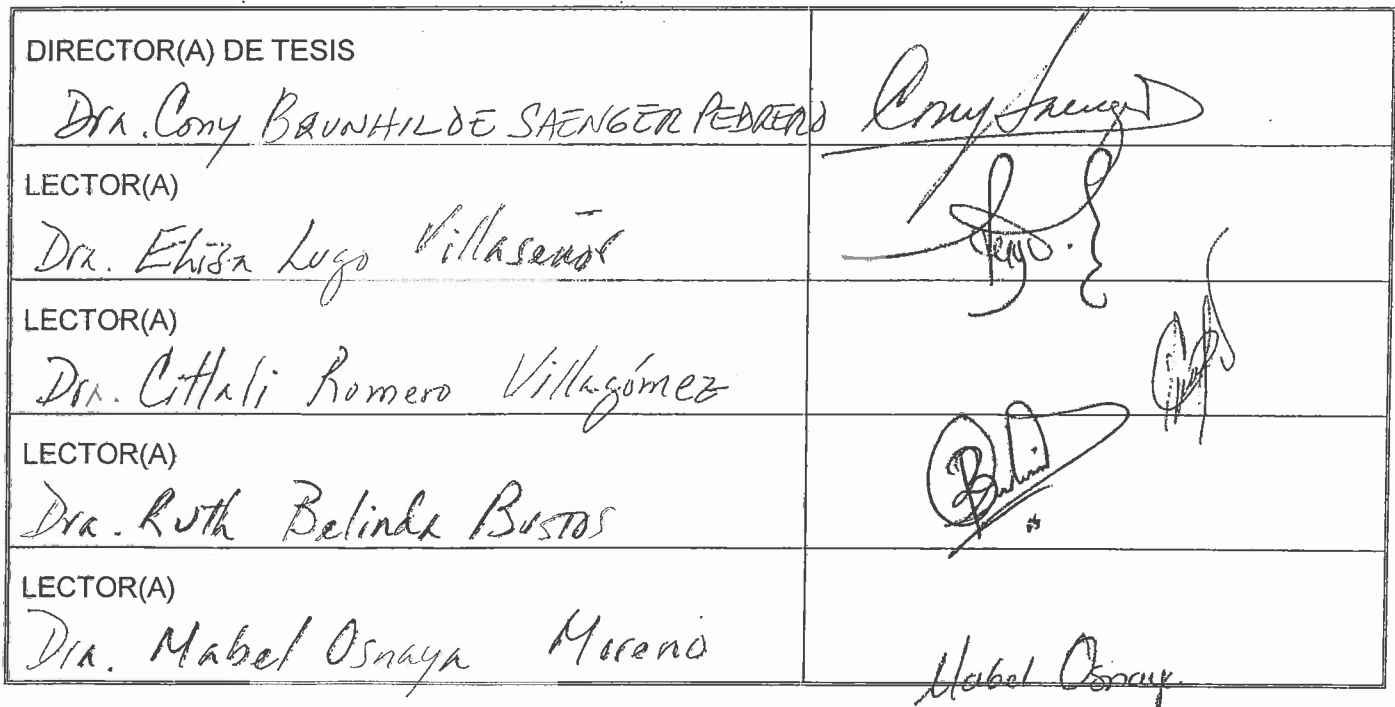 DIRECTOR(A) DE TESIS
Dra. Cony BRUNHILDE SAENGER PEDRERO Cony Saenger
LECTOR(A)
Dra. Elisa Lugo Villaseñor Lugo.
LECTOR(A)
Dra. Citlali Romero Villagómez
LECTOR(A)
Dra. Ruth Belinda Bustos
LECTOR(A)
Dra. Mabel Osnaya Moreno Mabel Osnaya